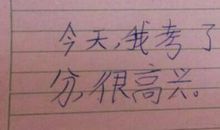 今天,我考了
分,很高兴。